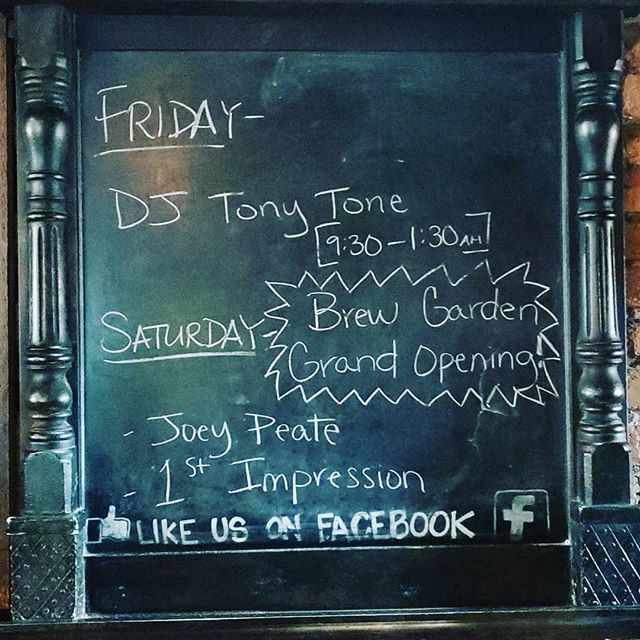 FRIDAY-
DJ Tony Tone
[9:30-1:30AM]
Brew Garden
SATURDAY-
Grand Opening!
- Joey Peate
- 1st Impression
LIKE US ON FACEBOOK f